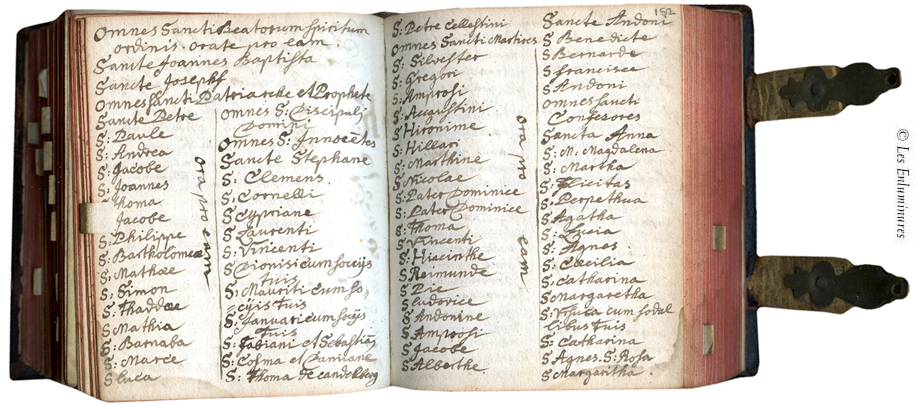 Omnes Sancti Beatorum spiritum
ordinis. orate pro eam.
Sancte Joannes Baptista
Sancte Joseph
Omnes Sancti Patriarche et Prophete
Sancte Petre
S: Paule
S: Andrea
S: Jacobe
S: Joannes
Thoma
Jacobe
S: Philippe
S: Bartholomeus
S: Mathæe
S: Simon
S: Thaddæe
S: Mathia
S: Barnaba
S: Marce
S Luca
ora pro eam
omnes S: Discipuli
Domini
Omnes S: Innocētes
Sancte Stephane
S: Clemens
S: Cornelli
S Cypriane
S: Laurenti
S: Vincenti
S Dionisi cum socijs
tuis
S: Mauriti cum so,
cijs tuis
S: Januari cum socijs
tuis
S: Fabiani et Sebastiāj
S: Cosma et Damiane
S: Thoma de candelberg
S: Petre Cellestini
Omnes Sancti Martires
S: Silvester
S: Gregori
S: Amprosi
S: Augustini
S: Hironime
S: Hillari
S: Marthine
S: Nicolae
S: Pater Dominice
S: Pater Dominice
S: Thoma
S: Vincenti
S: Hiacinthe
S: Reimunde
S: Pie
S: Ludovice
S: Andonine
S: Amprosi
S: Jacobe
S: Alberthe
ora pro eam
182
Sancte Andoni
S Benedicte
S Bernarde
S francisce
S: Andoni
omnes sancti
Confesores
Sancta Anna
S: M: Magdalena
S: Martha
S: Felicitas
S: Perpethua
S: Agatha
S: Lucia
S: Agnes
S: Cæcilia
S: Catharina
S Margaretha
S: Vrsula cum sodal
libus tuis
S: Catharina
S: Agnes. S: Rosa
S Margaritha.
© Les Enluminures